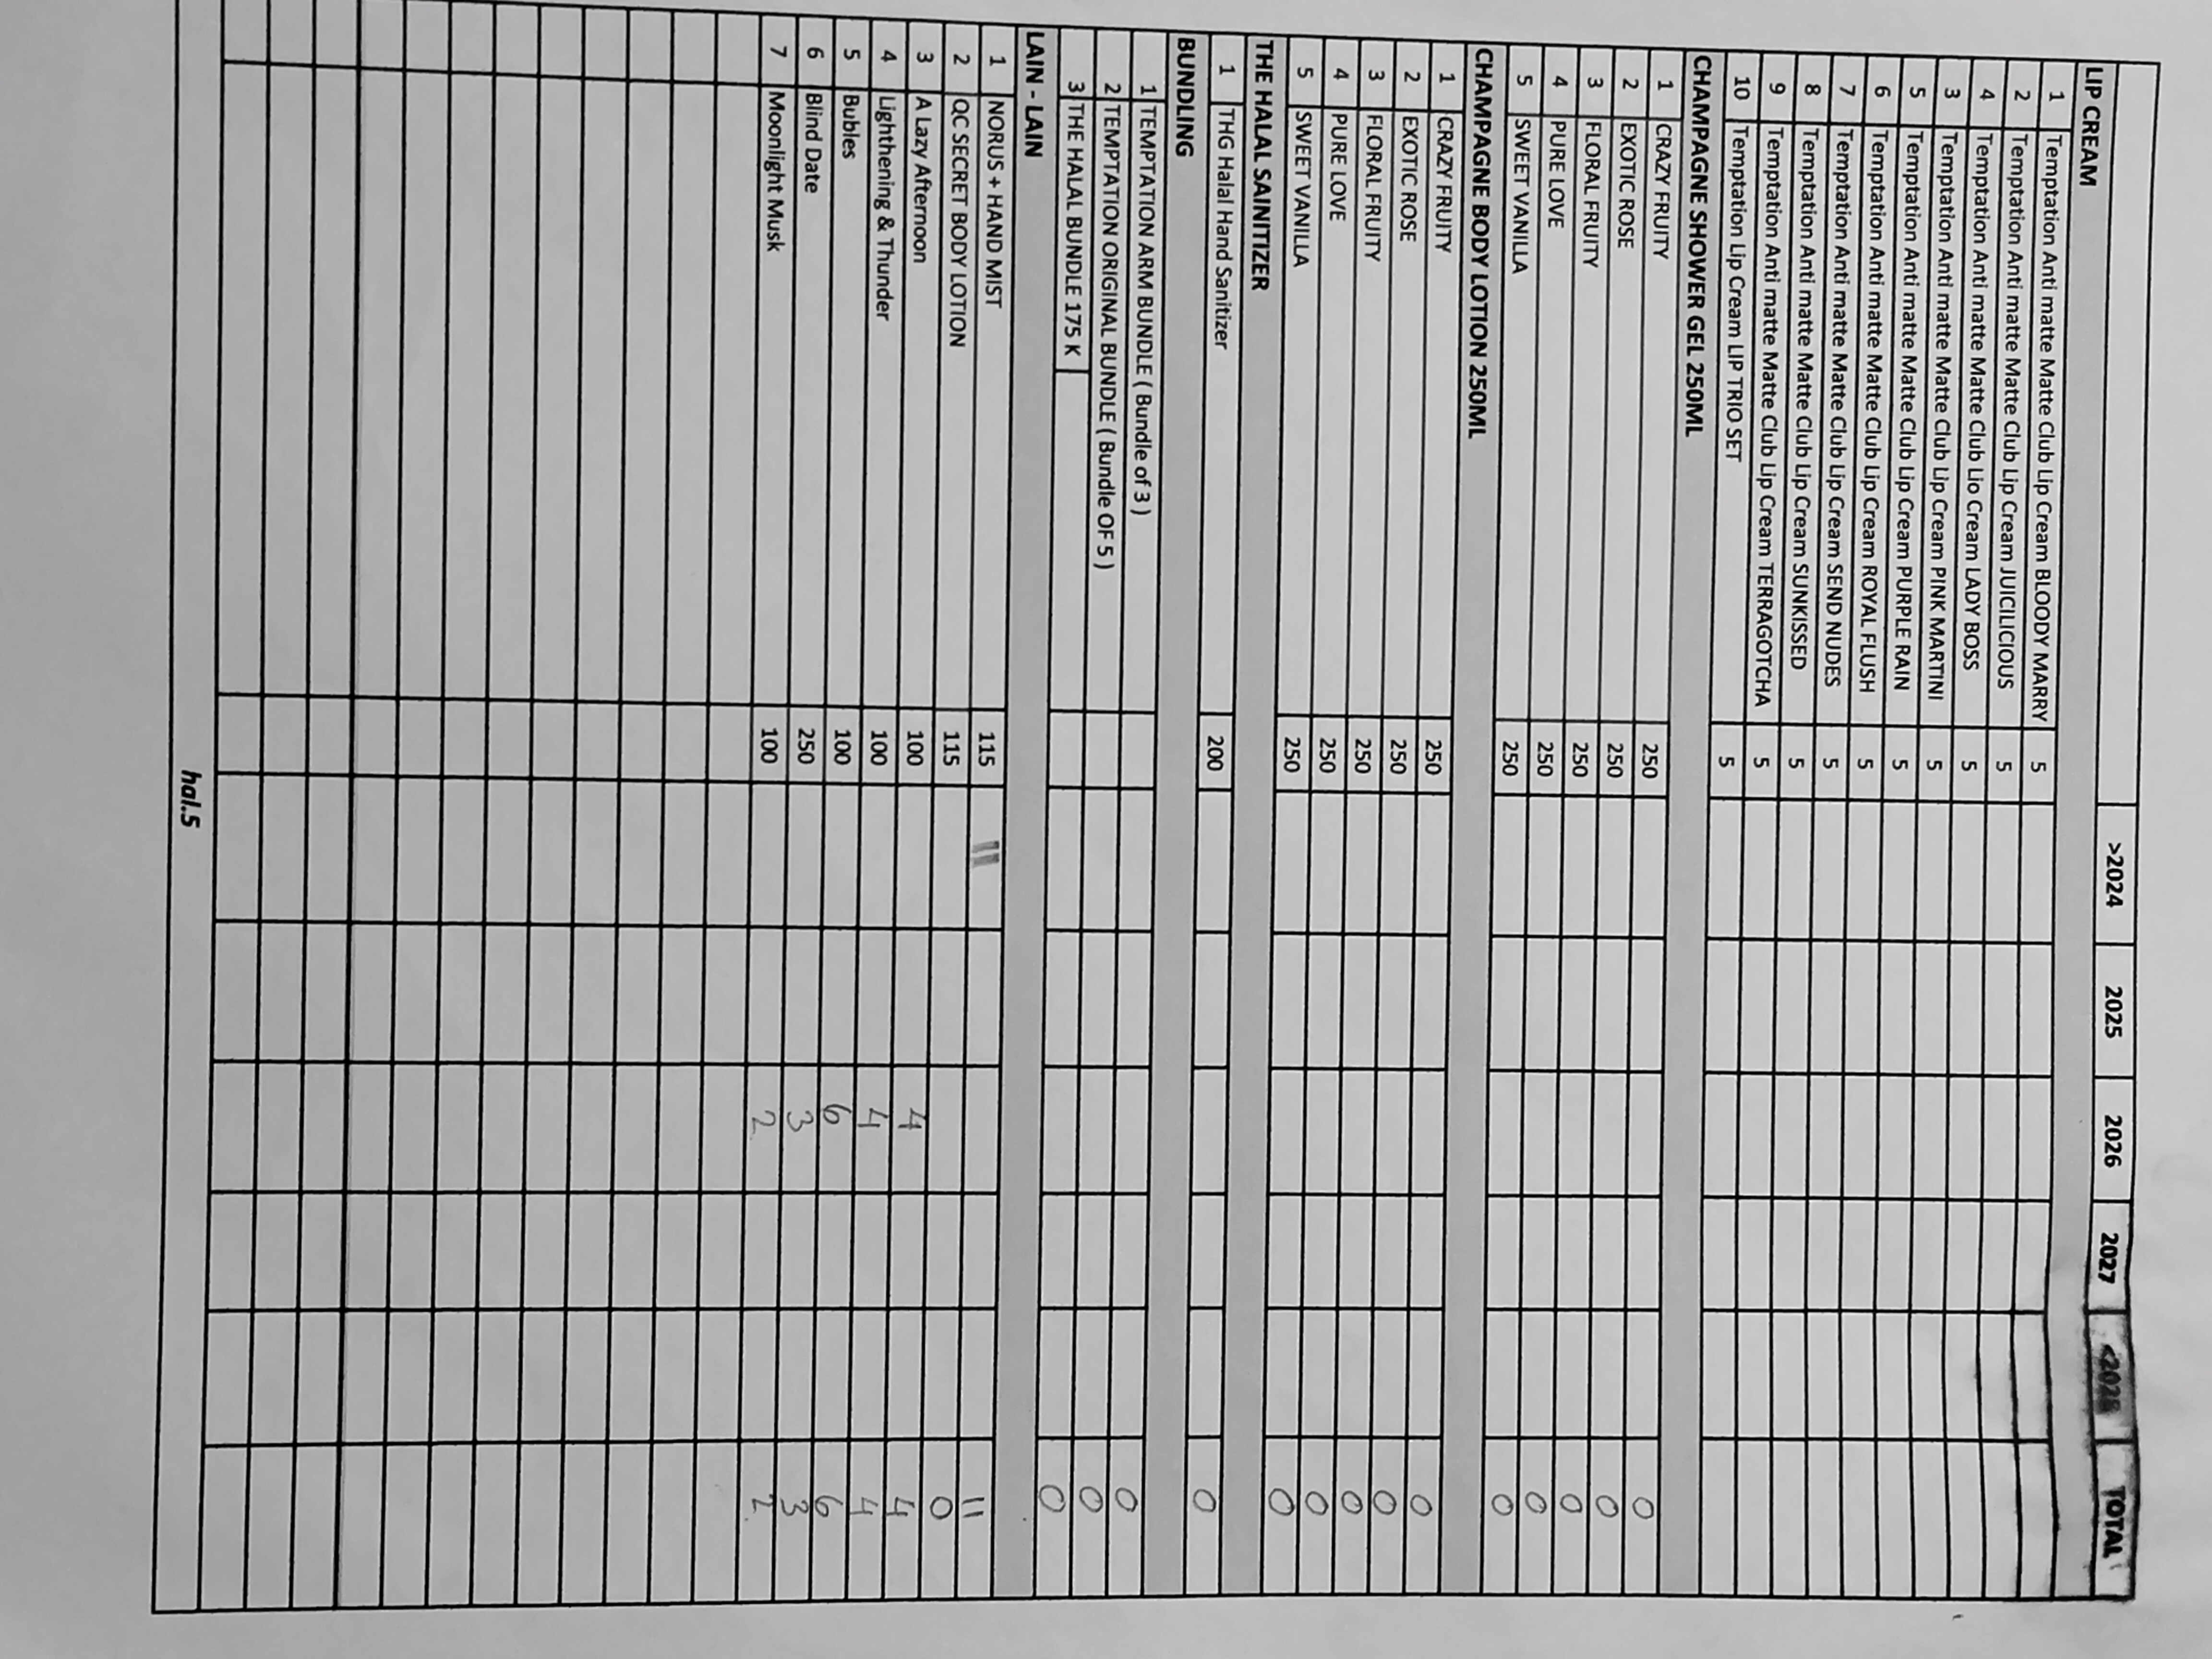 >2024 2025 2026 2027 <2028 TOTAL
LIP CREAM
1 Temptation Anti matte Matte Club Lip Cream BLOODY MARRY 5
2 Temptation Anti matte Matte Club Lip Cream JUICILICIOUS 5
4 Temptation Anti matte Matte Club Lio Cream LADY BOSS 5
3 Temptation Anti matte Matte Club Lip Cream PINK MARTINI 5
5 Temptation Anti matte Matte Club Lip Cream PURPLE RAIN 5
6 Temptation Anti matte Matte Club Lip Cream ROYAL FLUSH 5
7 Temptation Anti matte Matte Club Lip Cream SEND NUDES 5
8 Temptation Anti matte Matte Club Lip Cream SUNKISSED 5
9 Temptation Anti matte Matte Club Lip Cream TERRAGOTCHA 5
10 Temptation Lip Cream LIP TRIO SET 5
CHAMPAGNE SHOWER GEL 250ML
1 CRAZY FRUITY 250 0
2 EXOTIC ROSE 250 0
3 FLORAL FRUITY 250 0
4 PURE LOVE 250 0
5 SWEET VANILLA 250 0
CHAMPAGNE BODY LOTION 250ML
1 CRAZY FRUITY 250 0
2 EXOTIC ROSE 250 0
3 FLORAL FRUITY 250 0
4 PURE LOVE 250 0
5 SWEET VANILLA 250 0
THE HALAL SAINITIZER
1 THG Halal Hand Sanitizer 200 0
BUNDLING
1 TEMPTATION ARM BUNDLE ( Bundle of 3 ) 0
2 TEMPTATION ORIGINAL BUNDLE ( Bundle OF 5 ) 0
3 THE HALAL BUNDLE 175 K 0
LAIN - LAIN
1 NORUS + HAND MIST 115 11 11
2 QC SECRET BODY LOTION 115 0
3 A Lazy Afternoon 100 4 4
4 Lighthening & Thunder 100 4 4
5 Bubles 100 6 6
6 Blind Date 250 3 3
7 Moonlight Musk 100 2 2
hal.5